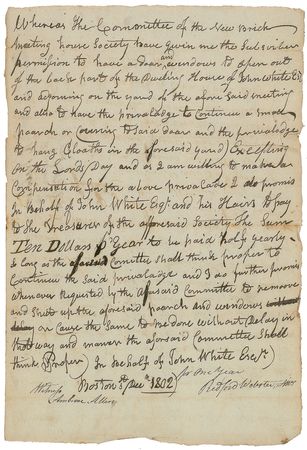 Whereas The Committee of the New brick
meeting house Society have given me the Subscriber
permission to have a daar and wendows to open out
of the back part of the Dweling House of John White Es
and adjoining on the yard of the afore Said meeting
and also to have the privaladge to Continue a small
poarch or Covering to Said daar and the privaladge
to hang Cloaths in the foresaid yard Excepting
On the Lords Day and as I am willing to make a
Compensation for the above privalages I do promis
In behalf of John White Esqr and his Hairs to pay
to the Treasurer of the aforesaid Society The Sum
TEN Dollars P Year to be paid holy yearly
So long as the Committee Shall think proper to
Continue the Said privaladge and I do further promis
Whenever Requested by the Aforsaid Committee to remove
and Shut up the aforesaid poarch and wendows
or Cause the Same to be done without Delay in
that way and maner the aforsaid Committee Shall
think Proper) In behalf of John White Esqr)
for One Year
Boston 3 Decr 1802
Witness
Redford Webster